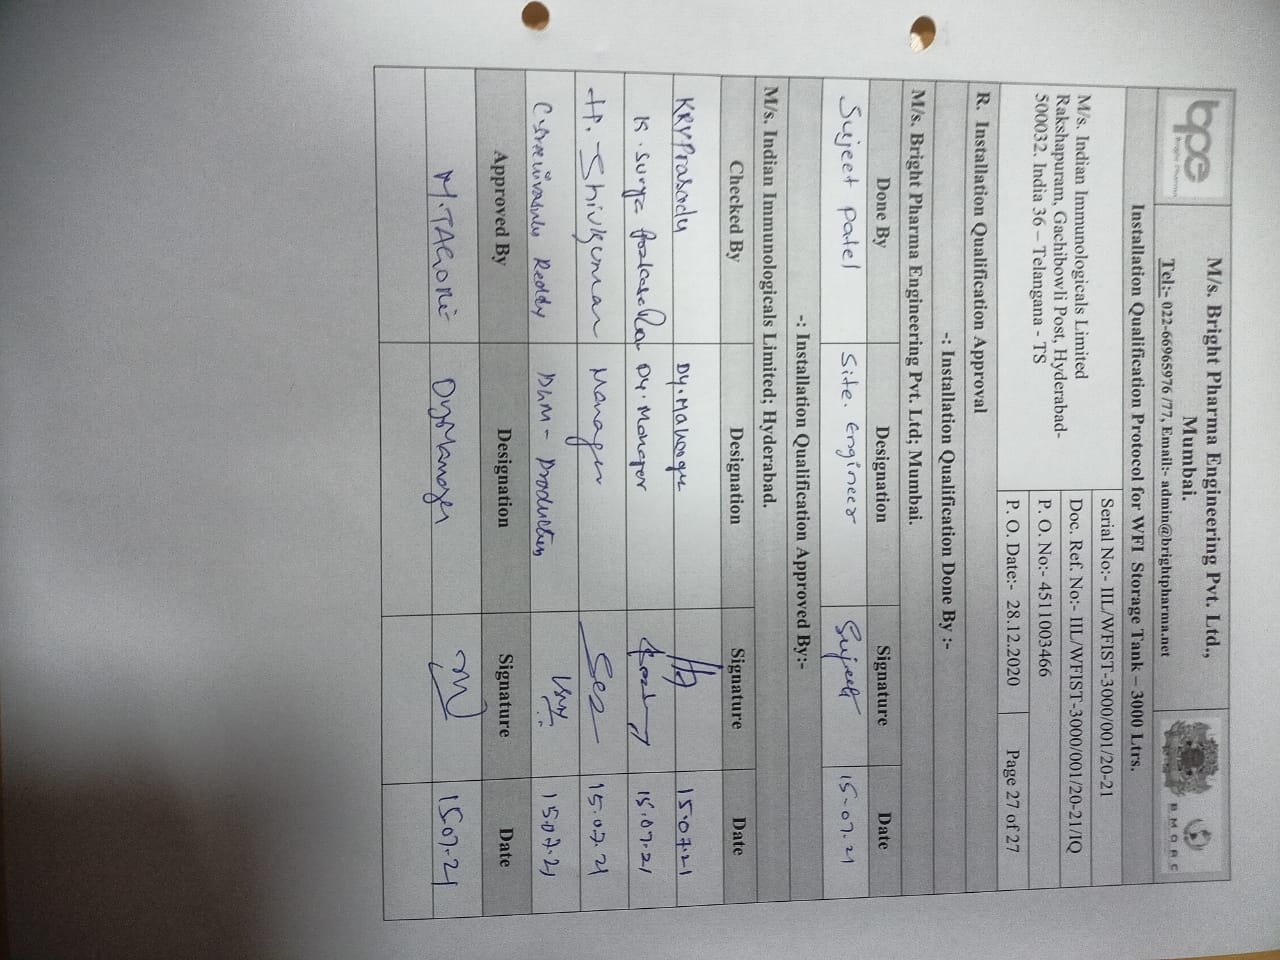 bpe
M/s. Bright Pharma Engineering Pvt. Ltd.,
Mumbai.
Tel:- 022-66965976 /77, Email:- admin@brightpharma.net
B M O R C
Installation Qualification Protocol for WFI Storage Tank – 3000 Ltrs.
M/s. Indian Immunologicals Limited
Rakshapuram, Gachibowli Post, Hyderabad-
500032. India 36 – Telangana - TS
Serial No:- IIL/WFIST-3000/001/20-21
Doc. Ref. No:- IIL/WFIST-3000/001/20-21/IQ
P. O. No:- 4511003466
P. O. Date:- 28.12.2020 Page 27 of 27
R. Installation Qualification Approval
-: Installation Qualification Done By :-
M/s. Bright Pharma Engineering Pvt. Ltd; Mumbai.
Done By Designation Signature Date
Sujeet Patel Site. Engineer Sujeet 15.07.21
-: Installation Qualification Approved By:-
M/s. Indian Immunologicals Limited; Hyderabad.
Checked By Designation Signature Date
Dy. Manager 15.07.21
K. Surya Dy. Manager 15.07.21
H. Shivkumar Manager 15.07.21
Reddy Production 15.07.21
Approved By Designation Signature Date
Dy Manager 15.07.21